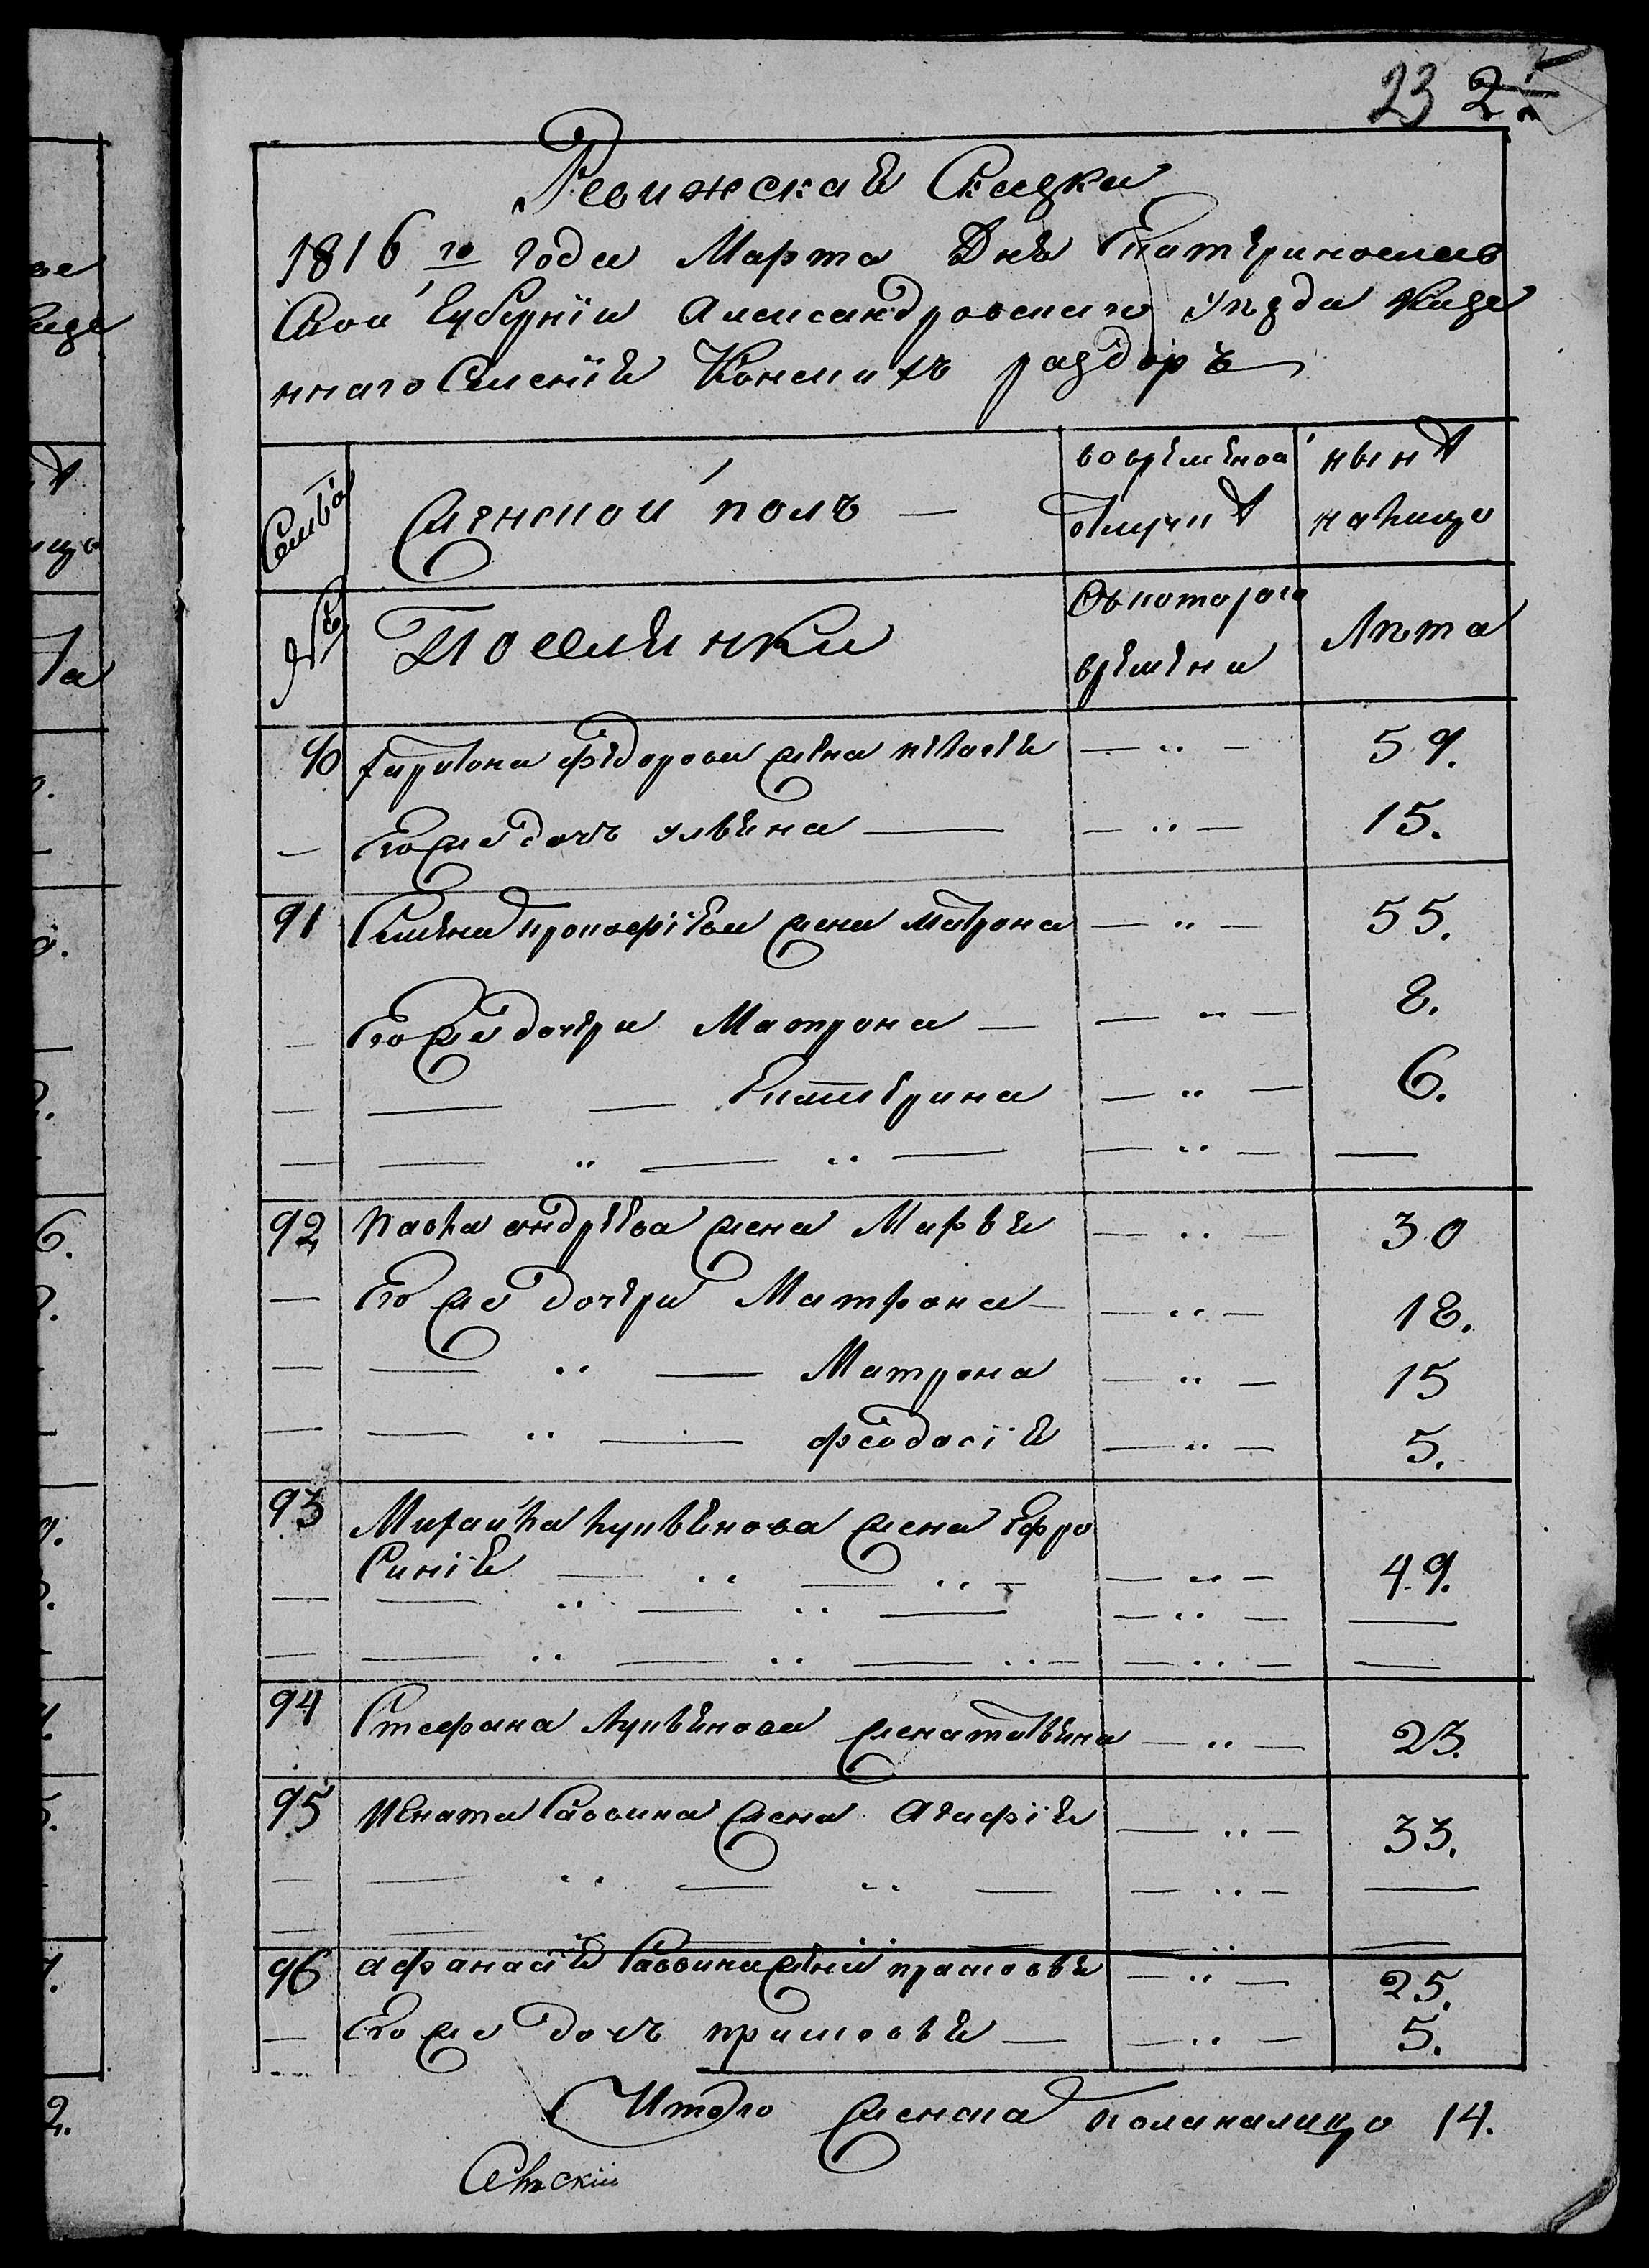 23
Ревижская Сказка
1816 го года Марта Дня Екатеринослав
Ской Губернiи Александровскаго уезда Казе
ннаго Селенiя Конскихъ раздоръ
Семьи
женской полъ —
во временой отлучкѣ
нынѣ налицо
№
Поселянки
Съ котораго времени
Лѣта
90 харитона федорова жена пелагея — „ — 59.
— Его же дочь ульяна — — „ — 15.
91 Семена прокофiева жена Матрона — „ — 55.
— Его же дочери Матрона — — „ — 8.
— — — Екатерина — „ — 6.
— — „ — „ — — „ — —
92 павла андреева жена Марья — „ — 30
— Его же дочери Матрона — — „ — 18.
— — „ — Матрона — „ — 15
— — „ — феодосiя — „ — 5.
93 Михайла лукьянова жена Ефро
синiя — „ — „ — — „ — 49.
— — „ — „ — — „ — —
— — „ — „ — „ — — „ — —
94 Стефана лукьянова жена татьяна — „ — 23.
95 игната Саввина жена Агафiя — „ — 33.
— — „ — „ — — „ — —
— — „ — „ — — „ — —
96 афанасiя Саввина жена прасковья — „ — 25.
— Его же дочь прасковья — — „ — 5.
Итого женска пола налицо 14.